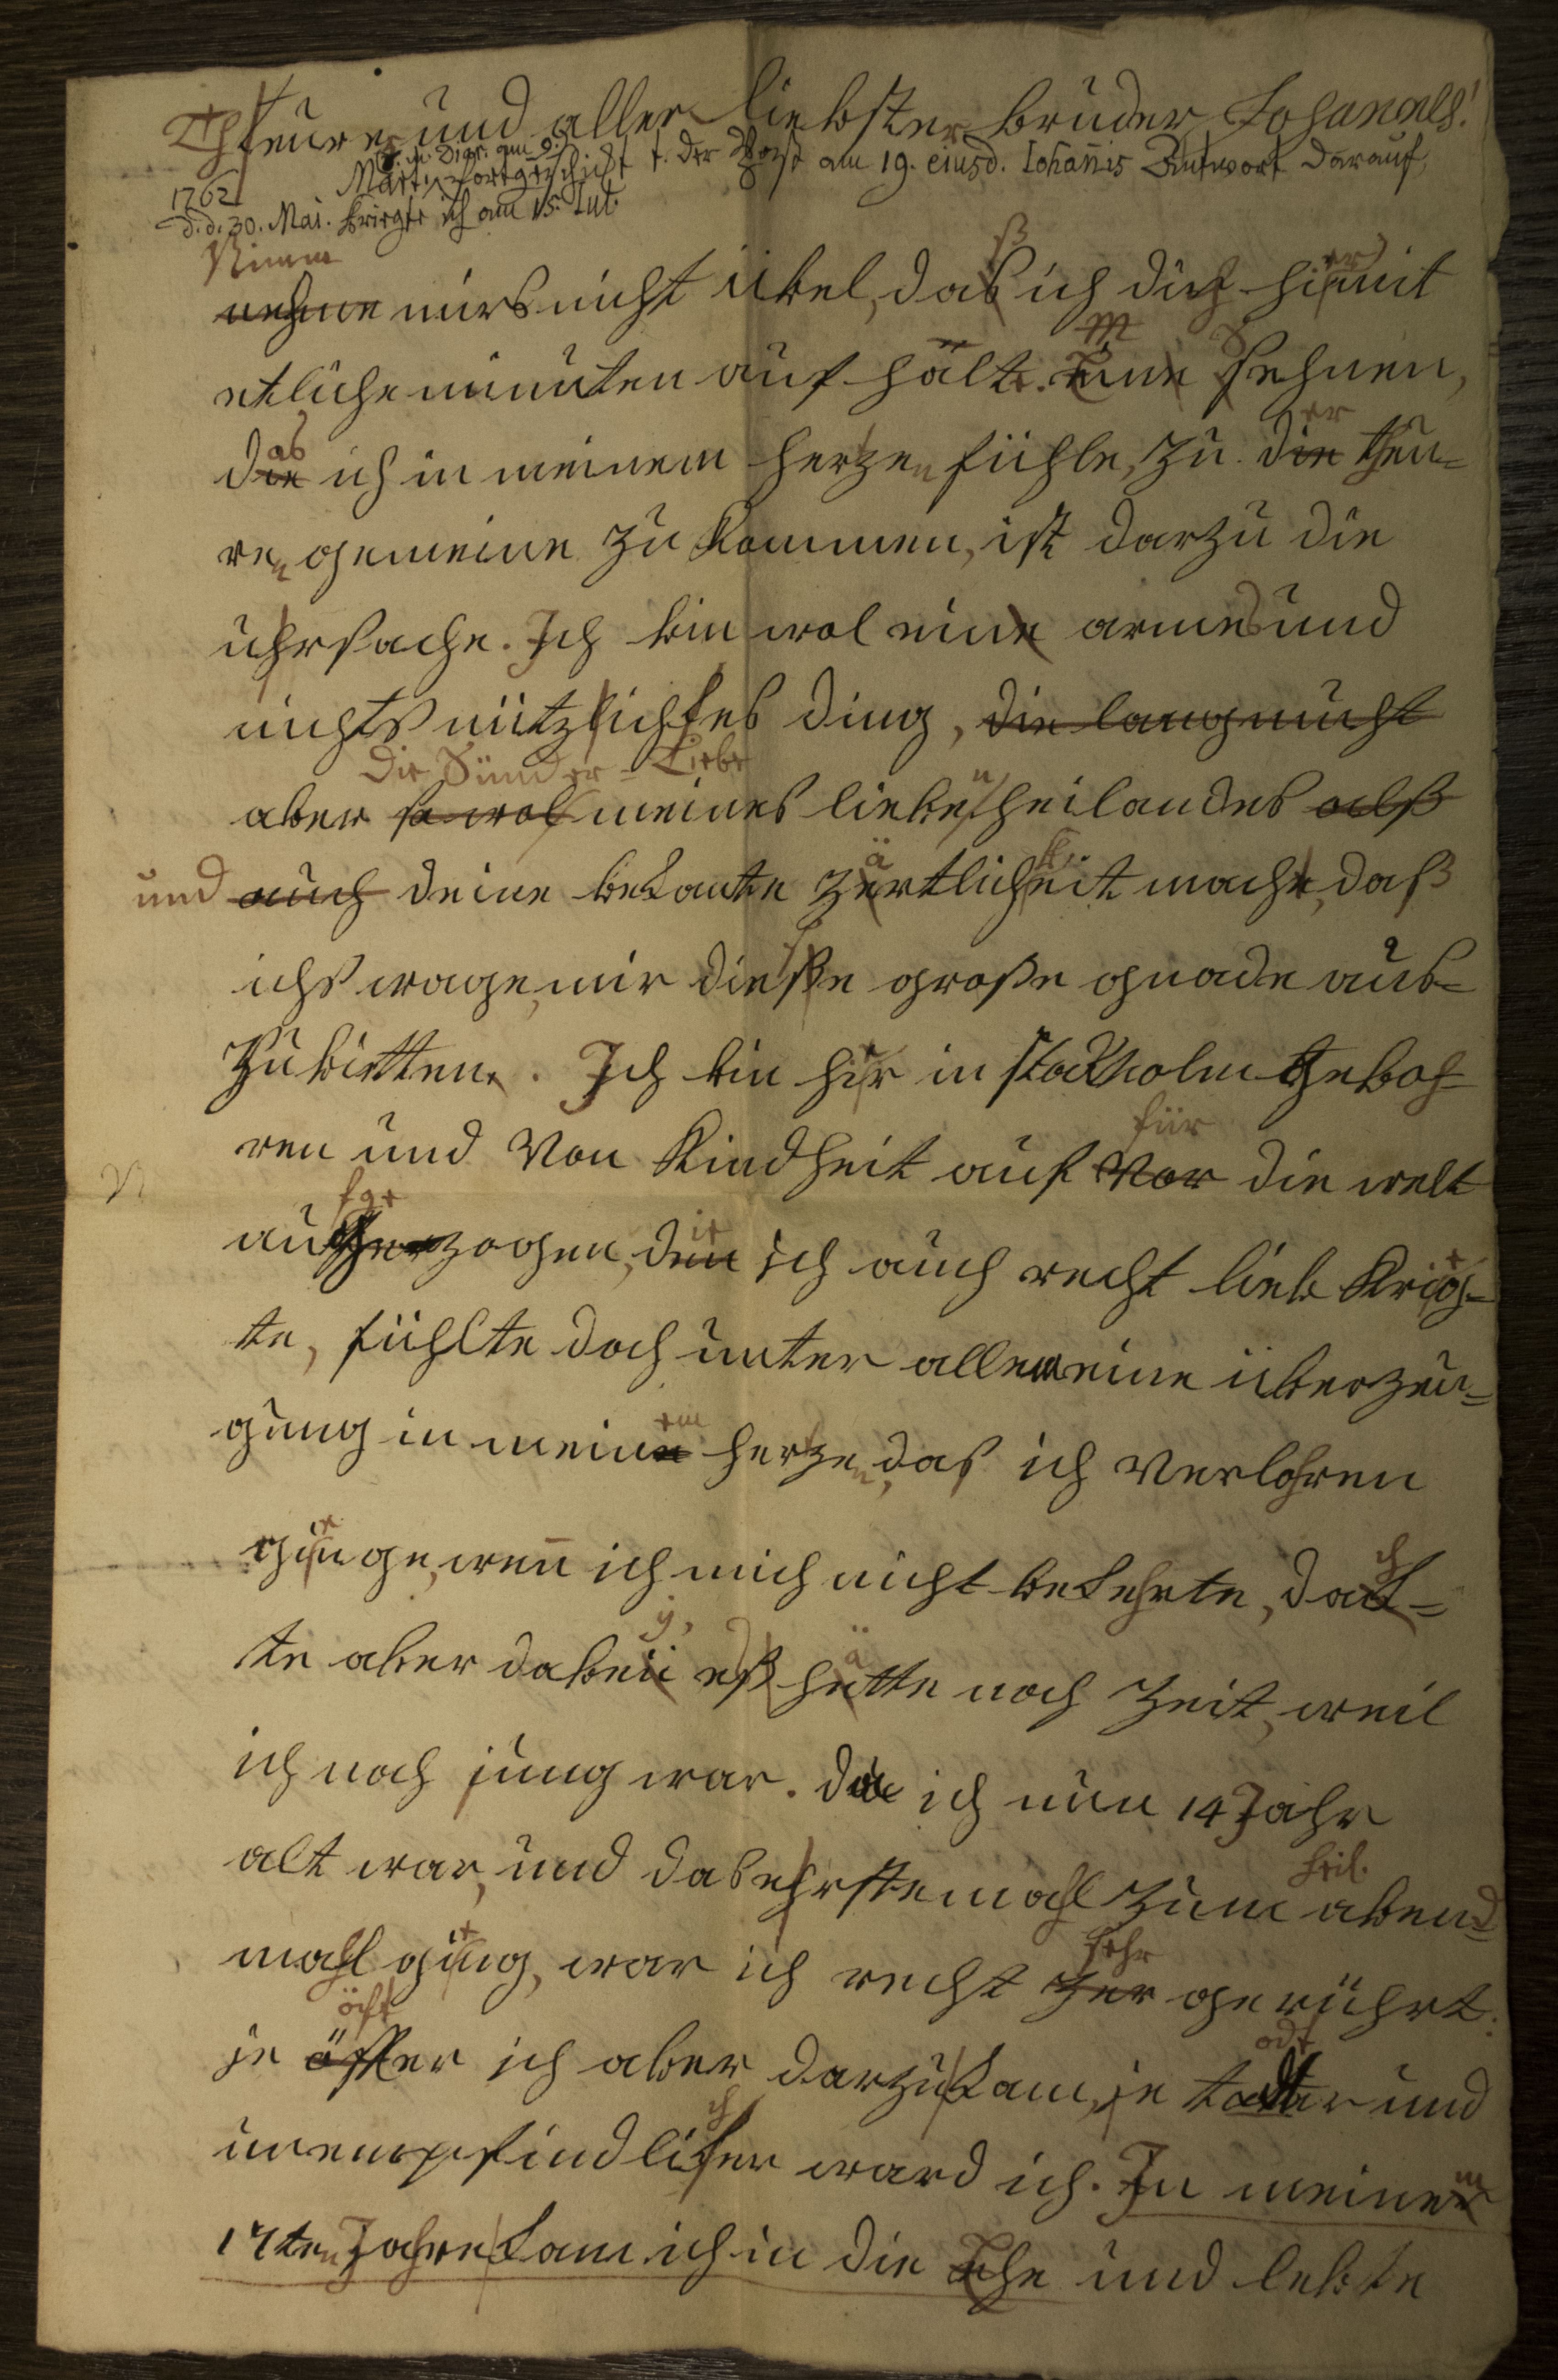 Theurer und aller liebster bruder Johannes!
Martii fortgeschickt t. der Post am 19. eiusd. Iohañis Antwort darauf,
1762
d. d. 30. Mai. kriegte ich am 15. Iul.
Nimm
nehme mirs nicht übel, das ich dich hiermit
etliche minuten auf halte. Eine sehnen,
die ich in meinem hertzen fühle, zu der theu=
ren gemeine zu kommen, ist darzu die
uhrsache. Ich bin wol eine armes und
nichts nützlichtes ding, die langmuht
die Sünder=Liebe
aber so wol meines lieben heilandes alß
und auch deine bekante zärtlichkeit macht, daß
ichs wage, mir dieße große gnade aus=
zubitten. Ich bin hir in stockholm geboh=
für
ren und von Kindheit auf vor die welt
auferzogen, die ich auch recht lieb krieg=
te, fühlte doch unter allem eine überzeu=
gung in meinem hertzen, das ich verlohren
ginge, weñ ich mich nicht bekehrte, dach=
te aber dabey, eß hätte noch zeit, weil
ich noch jung war. da ich nun 14 Jahr
heil.
alt war, und das ehrste mahl zum abend=
sehr
mahl ging, war ich recht zer gerührt.
öft
je öffter ich aber darzu kam, je todter und
unempfindlicher ward ich. In meinem
17ten Jahre kam ich in die Ehe und lebte